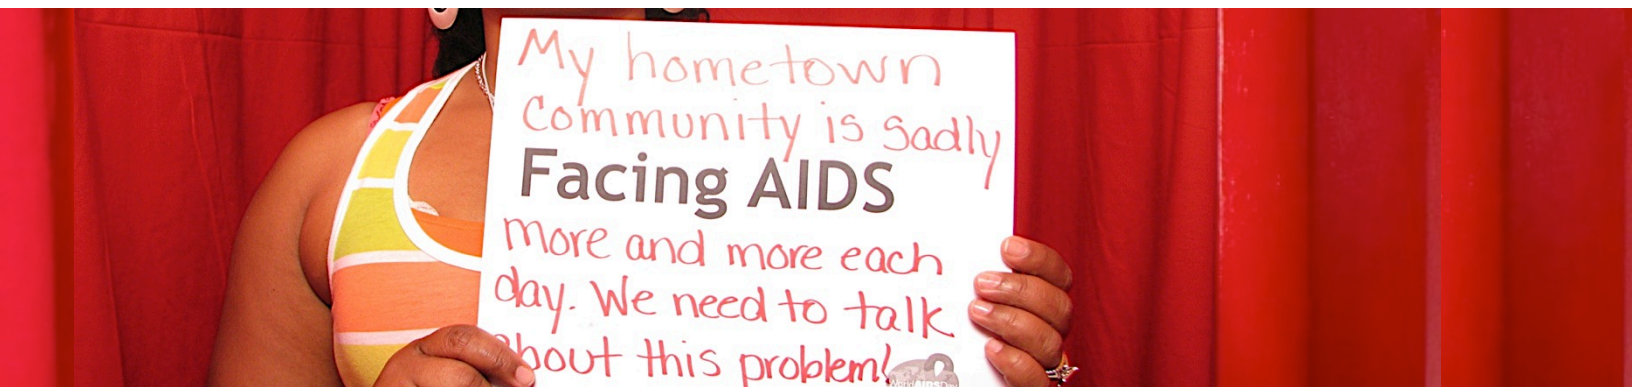 My hometown
Community is sadly
Facing AIDS
more and more each
day. We need to talk
about this problem!
World AIDS Day